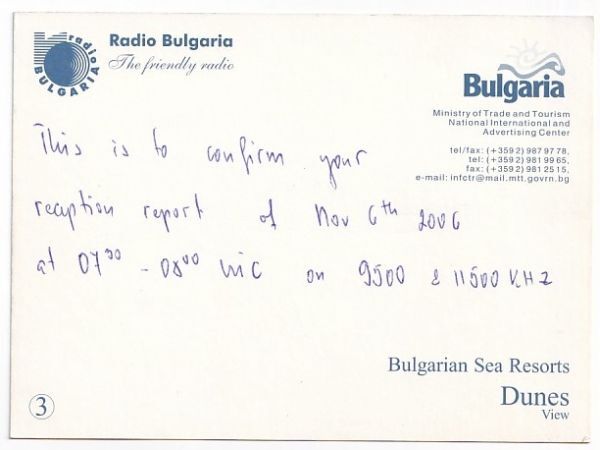 radio
BULGARIA
Radio Bulgaria
The friendly radio
Bulgaria
Ministry of Trade and Tourism
National International and
Advertising Center
tel/fax: (+359 2) 987 97 78,
tel: (+359 2) 981 99 65,
fax: (+359 2) 981 25 15,
e-mail: infctr@mail.mtt.govrn.bg
This is to confirm your
reception report of Nov 6th 2006
at 07 30 - 08 00 UTC on 9500 & 11500 KHZ
Bulgarian Sea Resorts
Dunes
View
3